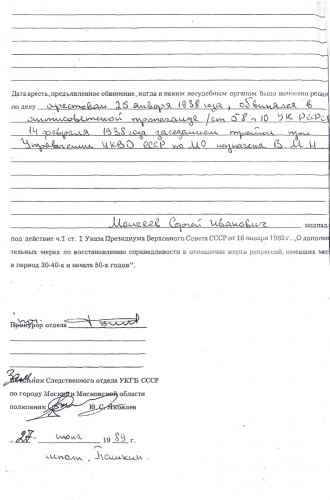 Дата ареста, предъявленное обвинение, когда и каким несудебным органом было вынесено решен
по делу арестован 25 января 1938 года, обвинялся в
антисоветской пропаганде /ст 58 п 10 УК РСФСР
14 февраля 1938 года заседанием тройки при
Управлении НКВД СССР по МО назначена В.М.Н
Моисеев Сергей Иванович подпад
под действие ч.I ст. I Указа Президиума Верховного Совета СССР от 16 января 1989 г. „О дополни
тельных мерах по восстановлению справедливости в отношении жертв репрессий, имевших мест
в период 30-40-х и начала 50-х годов".
Прокурор отдела
Зам
Начальник Следственого отдела УКГБ СССР
по городу Москве и Московской области
полковник Ю.С. Яковлев
„ 27 " июля 19 89 г.
исполн. Пашкин.